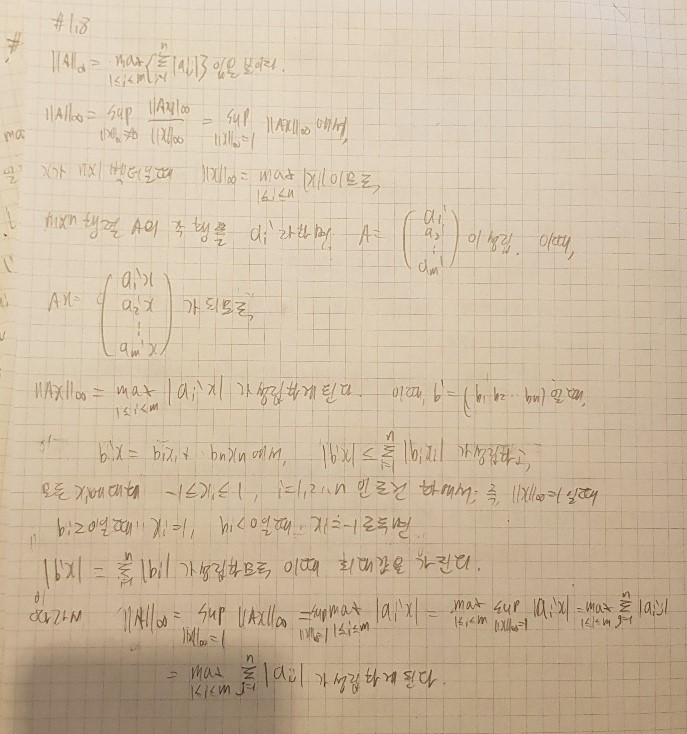 #1.8
||A||∞ = max_{1≤i≤m} { Σ_{j=1}^{n} |a_ij| } 임을 보이라.
||A||∞ = sup_{||x||∞≠0} ||Ax||∞ / ||x||∞ = sup_{||x||∞=1} ||Ax||∞ 이며,
x가 n×1 벡터일 때 ||x||∞ = max_{1≤i≤n} |x_i| 이므로,
m×n 행렬 A의 각 행을 a_i' 라 하면, A = ( a_1' a_2' ⋮ a_m' ) 이 성립. 이때,
Ax = ( a_1'x a_2'x ⋮ a_m'x ) 가 되므로,
||Ax||∞ = max_{1≤i≤m} |a_i'x| 가 성립한다. 이때 b' = (b_1 b_2 ... b_n) 일 때,
b'x = b_1x_1 + ... + b_nx_n |b'x| ≤ Σ_{i=1}^{n} |b_ix_i| 가 성립하고,
||x||∞=1 일 때 -1≤x_i≤1, i=1,2,...,n
b_i≥0일 때 x_i=1, b_i<0일 때 x_i=-1 로
|b'x| = Σ_{i=1}^{n} |b_i| 가 성립하므로 이때
따라서 ||A||∞ = sup_{||x||∞=1} ||Ax||∞ = sup_{||x||∞=1} max_{1≤i≤m} |a_i'x| = max_{1≤i≤m} sup_{||x||∞=1} |a_i'x| = max_{1≤i≤m} Σ_{j=1}^{n} |a_ij|
= max_{1≤i≤m} Σ_{j=1}^{n} |a_ij| 가 성립한다.